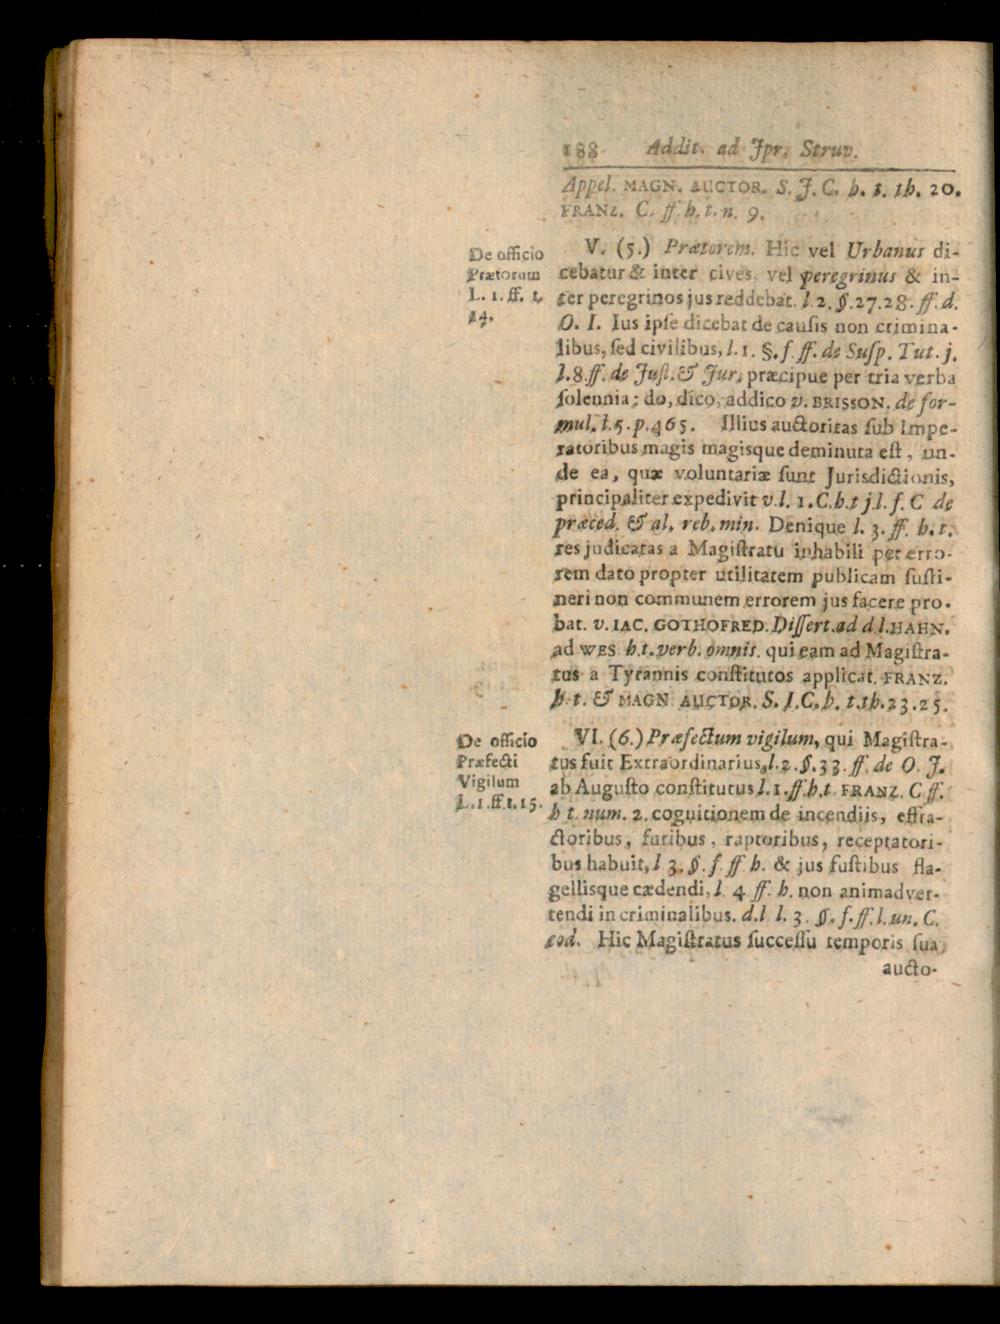 188 Addit. ad Jpr. Struv.
Appel. MAGN. AUCTOR. S. J. C. h. t. th. 20.
FRANZ. C. ff. h. t. n. 9.
De officio
Prætorum
L. 1. ff. t.
14.
V. (5.) Prætorem. Hic vel Urbanus di-
cebatur & inter cives, vel peregrinus & in-
ter peregrinos jus reddebat. l. 2. §. 27. 28. ff. d.
O. I. Ius ipſe dicebat de cauſis non crimina-
libus, ſed civilibus, l. 1. §. f. ff. de Suſp. Tut. j.
l. 8. ff. de Juſt. & Jur, præcipue per tria verba
ſolennia; do, dico, addico v. BRISSON. de for-
mul. l. 5. p. 465. Illius auctoritas ſub Impe-
ratoribus magis magisque deminuta eſt, un-
de ea, quæ voluntariæ ſunt Jurisdictionis,
principaliter expedivit v. l. 1. C. h. t j. l. f. C de
præced. & al. reb. min. Denique l. 3. ff. h. t.
res judicatas a Magiſtratu inhabili per erro-
rem dato propter utilitatem publicam ſuſti-
neri non communem errorem jus facere pro-
bat. v. IAC. GOTHOFRED. Diſſert. ad d l. HAHN.
ad WES h. t. verb. omnis. qui eam ad Magiſtra-
tus a Tyrannis conſtitutos applicat. FRANZ.
h. t. & MAGN. AUCTOR. S. J. C. h. t. th. 23. 25.
De officio
Præfecti
Vigilum
L. 1. ff. t. 15.
VI. (6.) Præfectum vigilum, qui Magiſtra-
tus fuit Extraordinarius, l. 2. §. 33. ff. de O. J.
ab Auguſto conſtitutus l. 1. ff. h. t FRANZ. C ff.
h t. num. 2. cognitionem de incendiis, effra-
ctoribus, furibus, raptoribus, receptatori-
bus habuit, l 3. §. f. ff h. & jus fuſtibus fla-
gellisque cædendi, l. 4 ff. h. non animadver-
tendi in criminalibus. d. l l. 3. §. f. ff. l. un. C.
eod. Hic Magiſtratus ſucceſſu temporis ſua
aucto-